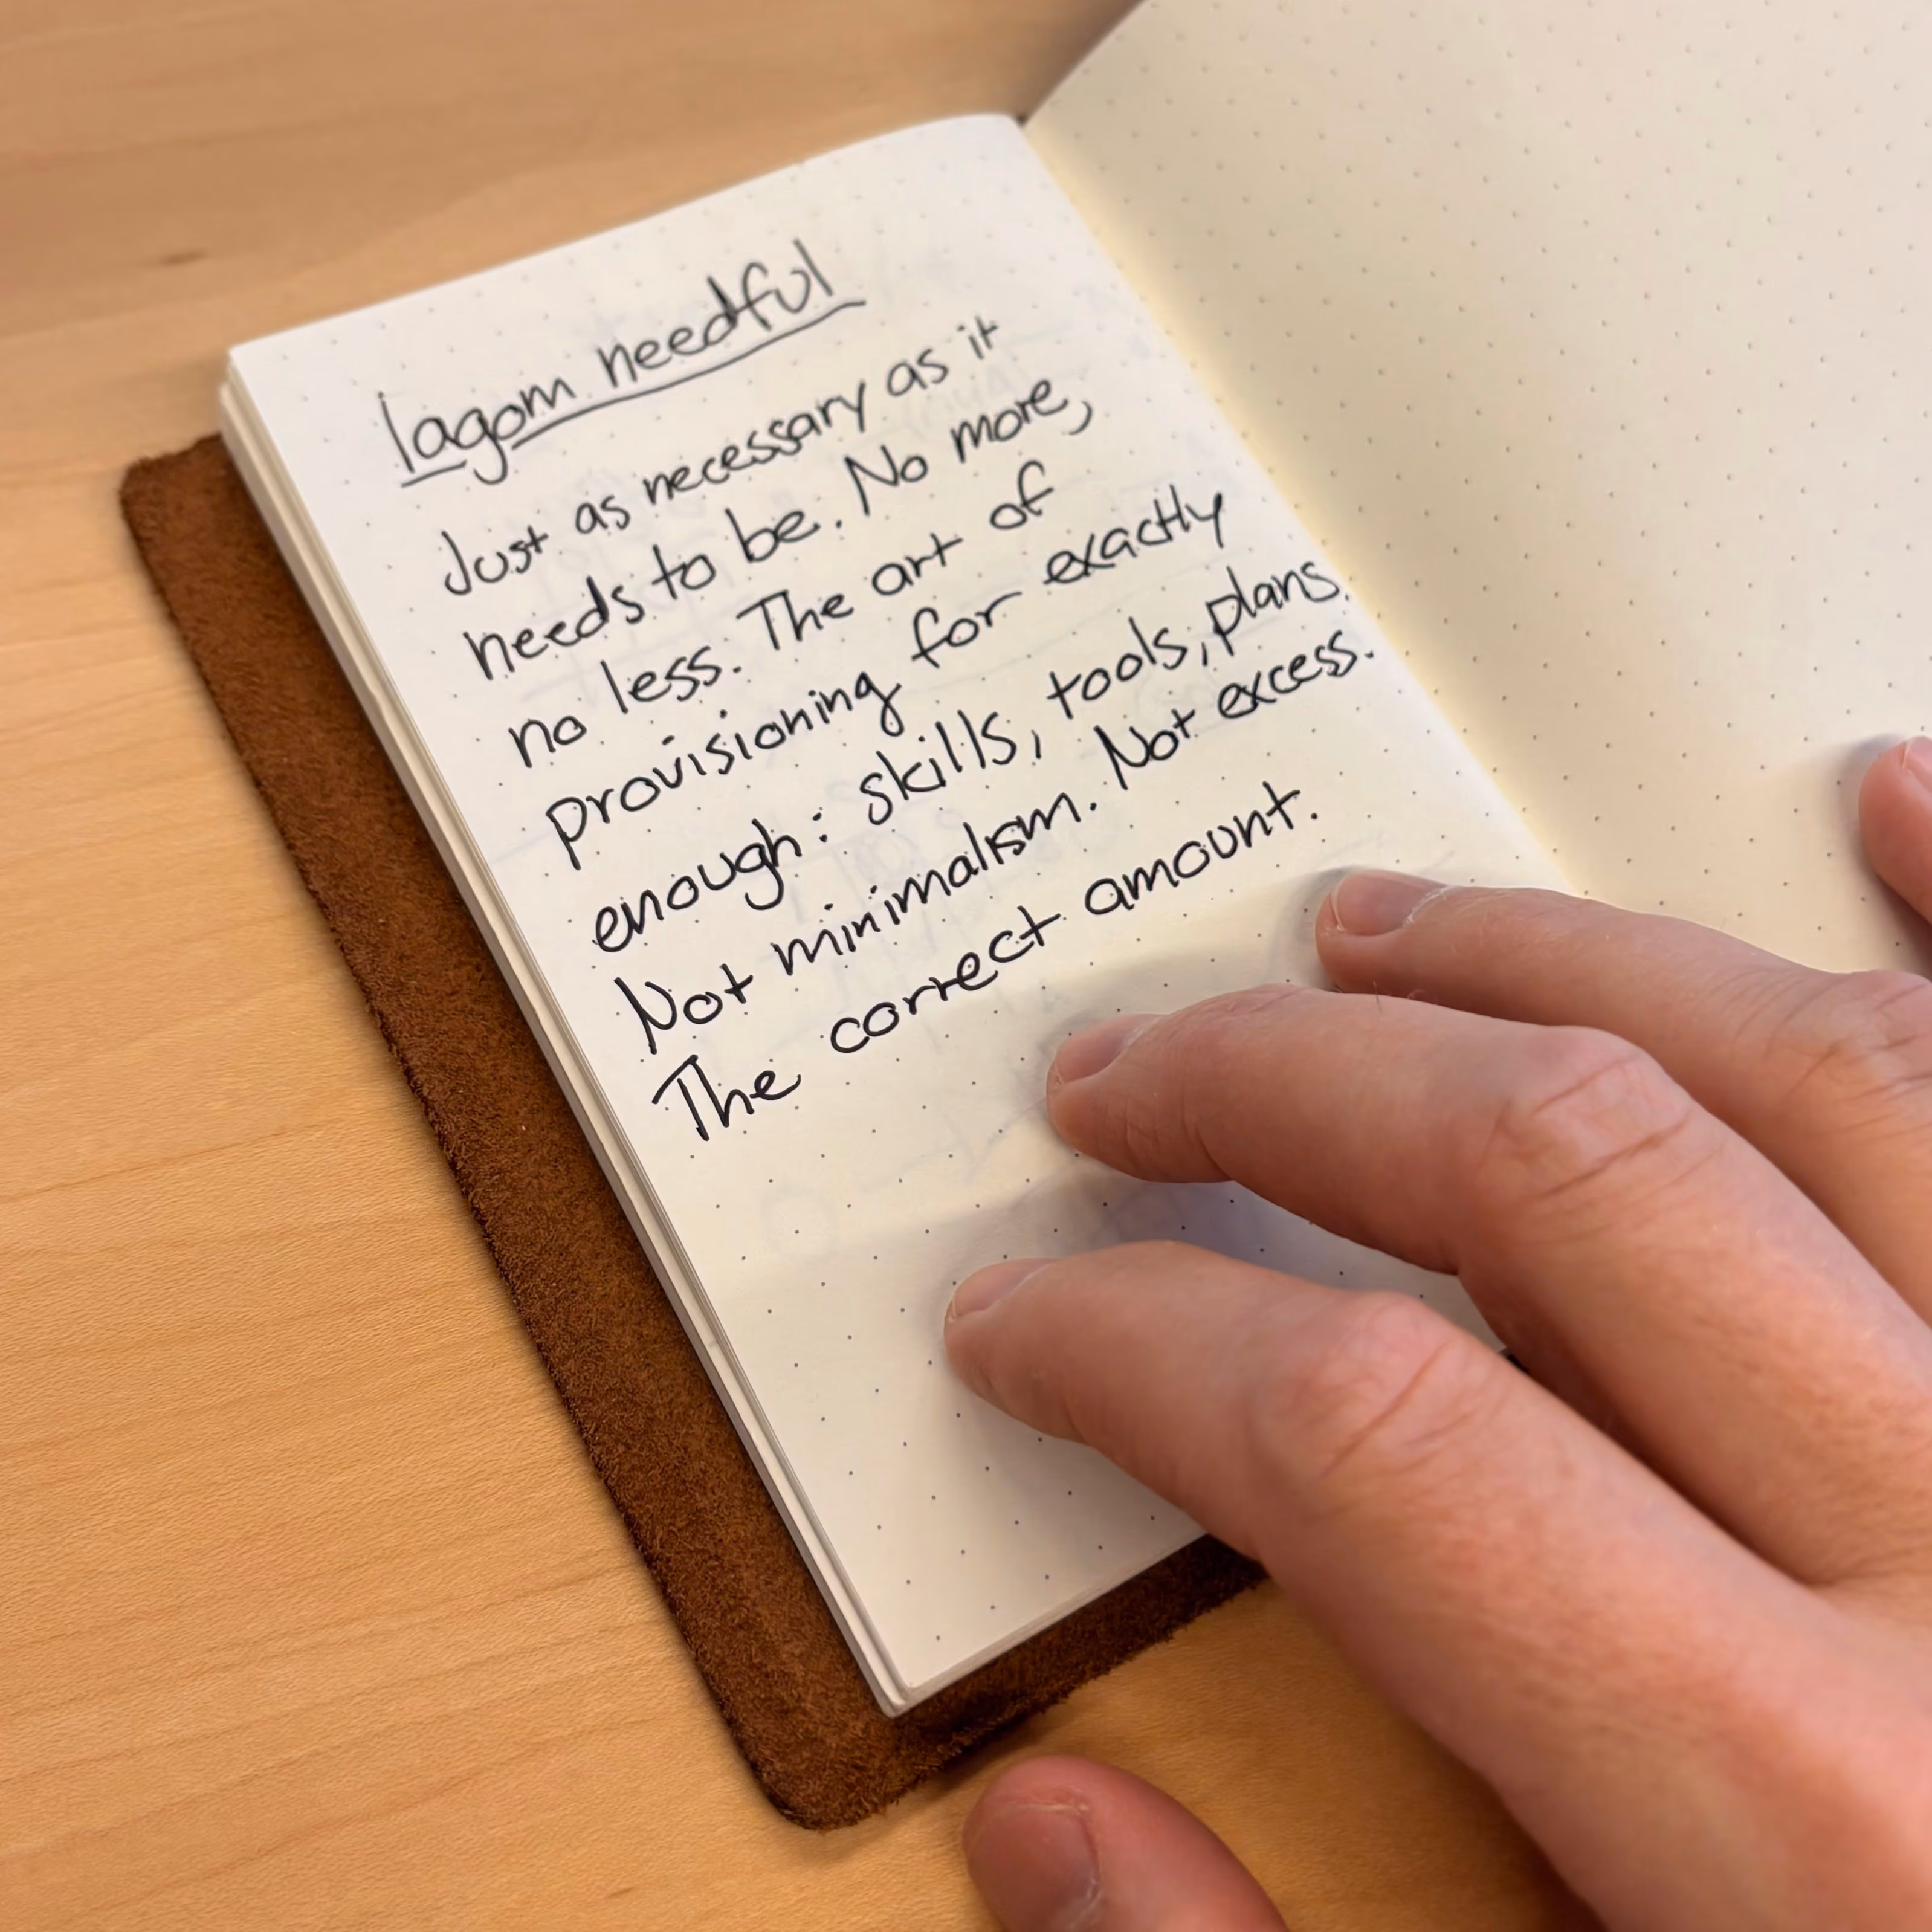 lagom needful
Just as necessary as it
needs to be. No more,
no less. The art of
provisioning for exactly
enough: skills, tools, plans.
Not minimalism. Not excess.
The correct amount.